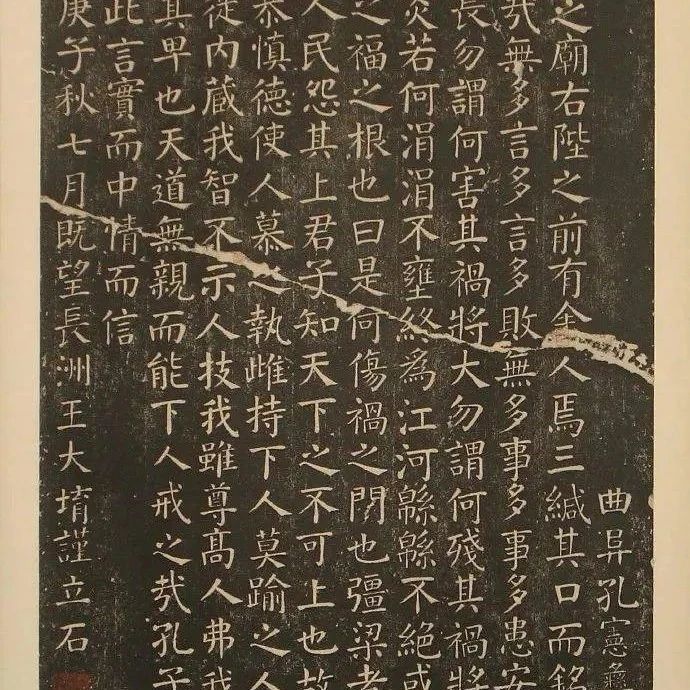 曲阜孔憲彝
之廟右陛之前有金人焉三緘其口而銘
哉無多言多言多敗無多事多事多患安
長勿謂何害其禍將大勿謂何殘其禍將
炎若何涓涓不壅終爲江河緜緜不絕或
之福之根也曰是何傷禍之門也彊梁者
人民怨其上君子知天下之不可上也故
恭慎德使人慕之執雌持下人莫踰之人
徙内藏我智不示人技我雖尊髙人弗我
其卑也天道無親而能下人戒之哉孔子
此言實而中情而信
庚子秋七月既望長洲王大堉謹立石